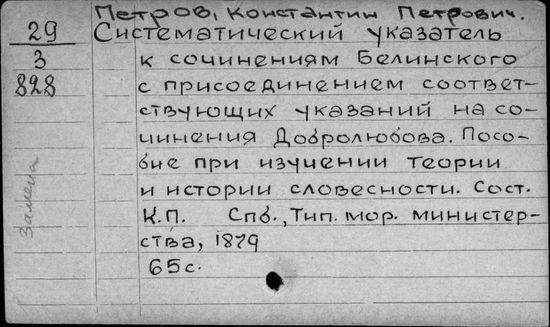 Петров, Константин Петрович.
29
3
828
Систематический указатель
к сочинениям Белинского
с присоединением соответ-
ствующих указаний на со-
чинения Добролюбова. Посо-
бие при изучении теории
и истории словесности. Сост.
К.П. Спб., Тип. мор. министер-
ства, 1879
65с.
Замена